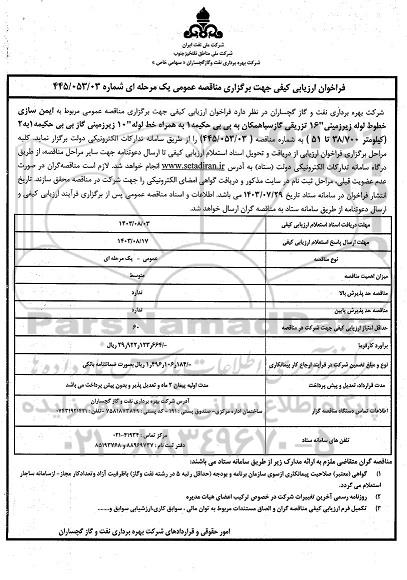 شرکت ملی نفت ایران
شرکت ملی مناطق نفتخیز جنوب
شرکت بهره برداری نفت و گاز گچساران ( سهامی خاص )
فراخوان ارزیابی کیفی جهت برگزاری مناقصه عمومی یک مرحله ای شماره ۴۴۵/۰۵۳/۰۳
شرکت بهره برداری نفت و گاز گچساران در نظر دارد فراخوان ارزیابی کیفی جهت برگزاری مناقصه عمومی مربوط به ایمن سازی
خطوط لوله زیرزمینی "۱۶ تزریقی گازسیاهمکان به بی بی حکیمه۱ به همراه خط لوله "۱۰ زیرزمینی گاز بی بی حکیمه۱به۲
(کیلومتر ۳۸/۷۰۰ تا ۵۱ ) به شماره مناقصه ( ۴۴۵/۰۵۳/۰۳ ) را از طریق سامانه تدارکات الکترونیکی دولت برگزار نماید. کلیه
مراحل برگزاری فراخوان ارزیابی از دریافت و تحویل اسناد استعلام ارزیابی کیفی تا ارسال دعوتنامه جهت سایر مراحل مناقصه، از طریق
درگاه سامانه تدارکات الکترونیکی دولت (ستاد) به آدرس www.setadiran.ir انجام خواهد شد. لازم است مناقصه‌گران در صورت
عدم عضویت قبلی، مراحل ثبت نام در سایت مذکور و دریافت گواهی امضای الکترونیکی را جهت شرکت در مناقصه محقق سازند. تاریخ
انتشار فراخوان در سامانه ستاد تاریخ ۱۴۰۳/۰۷/۲۹ می باشد. اطلاعات و اسناد مناقصه عمومی پس از برگزاری فرآیند ارزیابی کیفی و
ارسال دعوتنامه از طریق سامانه ستاد به مناقصه گران ارسال خواهد شد.
مهلت دریافت اسناد استعلام ارزیابی کیفی ۱۴۰۳/۰۸/۰۳
مهلت ارسال پاسخ استعلام ارزیابی کیفی ۱۴۰۳/۰۸/۱۷
نوع مناقصه عمومی - یک مرحله ای
میزان اهمیت مناقصه متوسط
مناقصه حد پذیرش بالا ندارد
مناقصه حد پذیرش پایین ندارد
حداقل امتیاز ارزیابی کیفی جهت شرکت در مناقصه ۶۰
برآورد کارفرما ۲۹,۹۲۲,۱۲۳,۶۶۴/- ریال
نوع و مبلغ تضمین شرکت در فرآیند ارجاع کار پیمانکاری ۱,۴۹۶,۱۰۶,۱۸۴/- ریال بصورت ضمانتنامه بانکی
مدت قرارداد، تعدیل و پیش پرداخت مدت اولیه پیمان ۲ ماه و تعدیل پذیر و بدون پیش پرداخت می باشد
اطلاعات تماس دستگاه مناقصه گزار آدرس شرکت بهره برداری نفت و گاز گچساران
تلفن های سامانه ستاد مرکز تماس : ۴۱۹۳۴-۰۲۱
دفتر ثبت نام : ۸۸۹۶۹۷۳۷ و ۸۵۱۹۳۷۶۸
مناقصه گران متقاضی ملزم به ارائه مدارک زیر از طریق سامانه ستاد می باشند:
۱) گواهی (معتبر) صلاحیت پیمانکاری ازسوی سازمان برنامه و بودجه (حداقل رتبه ۵ در رشته نفت وگاز) باظرفیت آزاد وتعدادکار مجاز- ازسامانه ساجار
استعلام می گردد.
۲) روزنامه رسمی آخرین تغییرات شرکت در خصوص ترکیب اعضای هیات مدیره
۳) تکمیل فرم ارزیابی کیفی مناقصه گران و الصاق مستندات مربوط به توان مالی ، سوابق کاری،ارزشیابی سوابق و......
امور حقوقی و قراردادهای شرکت بهره برداری نفت و گاز گچساران